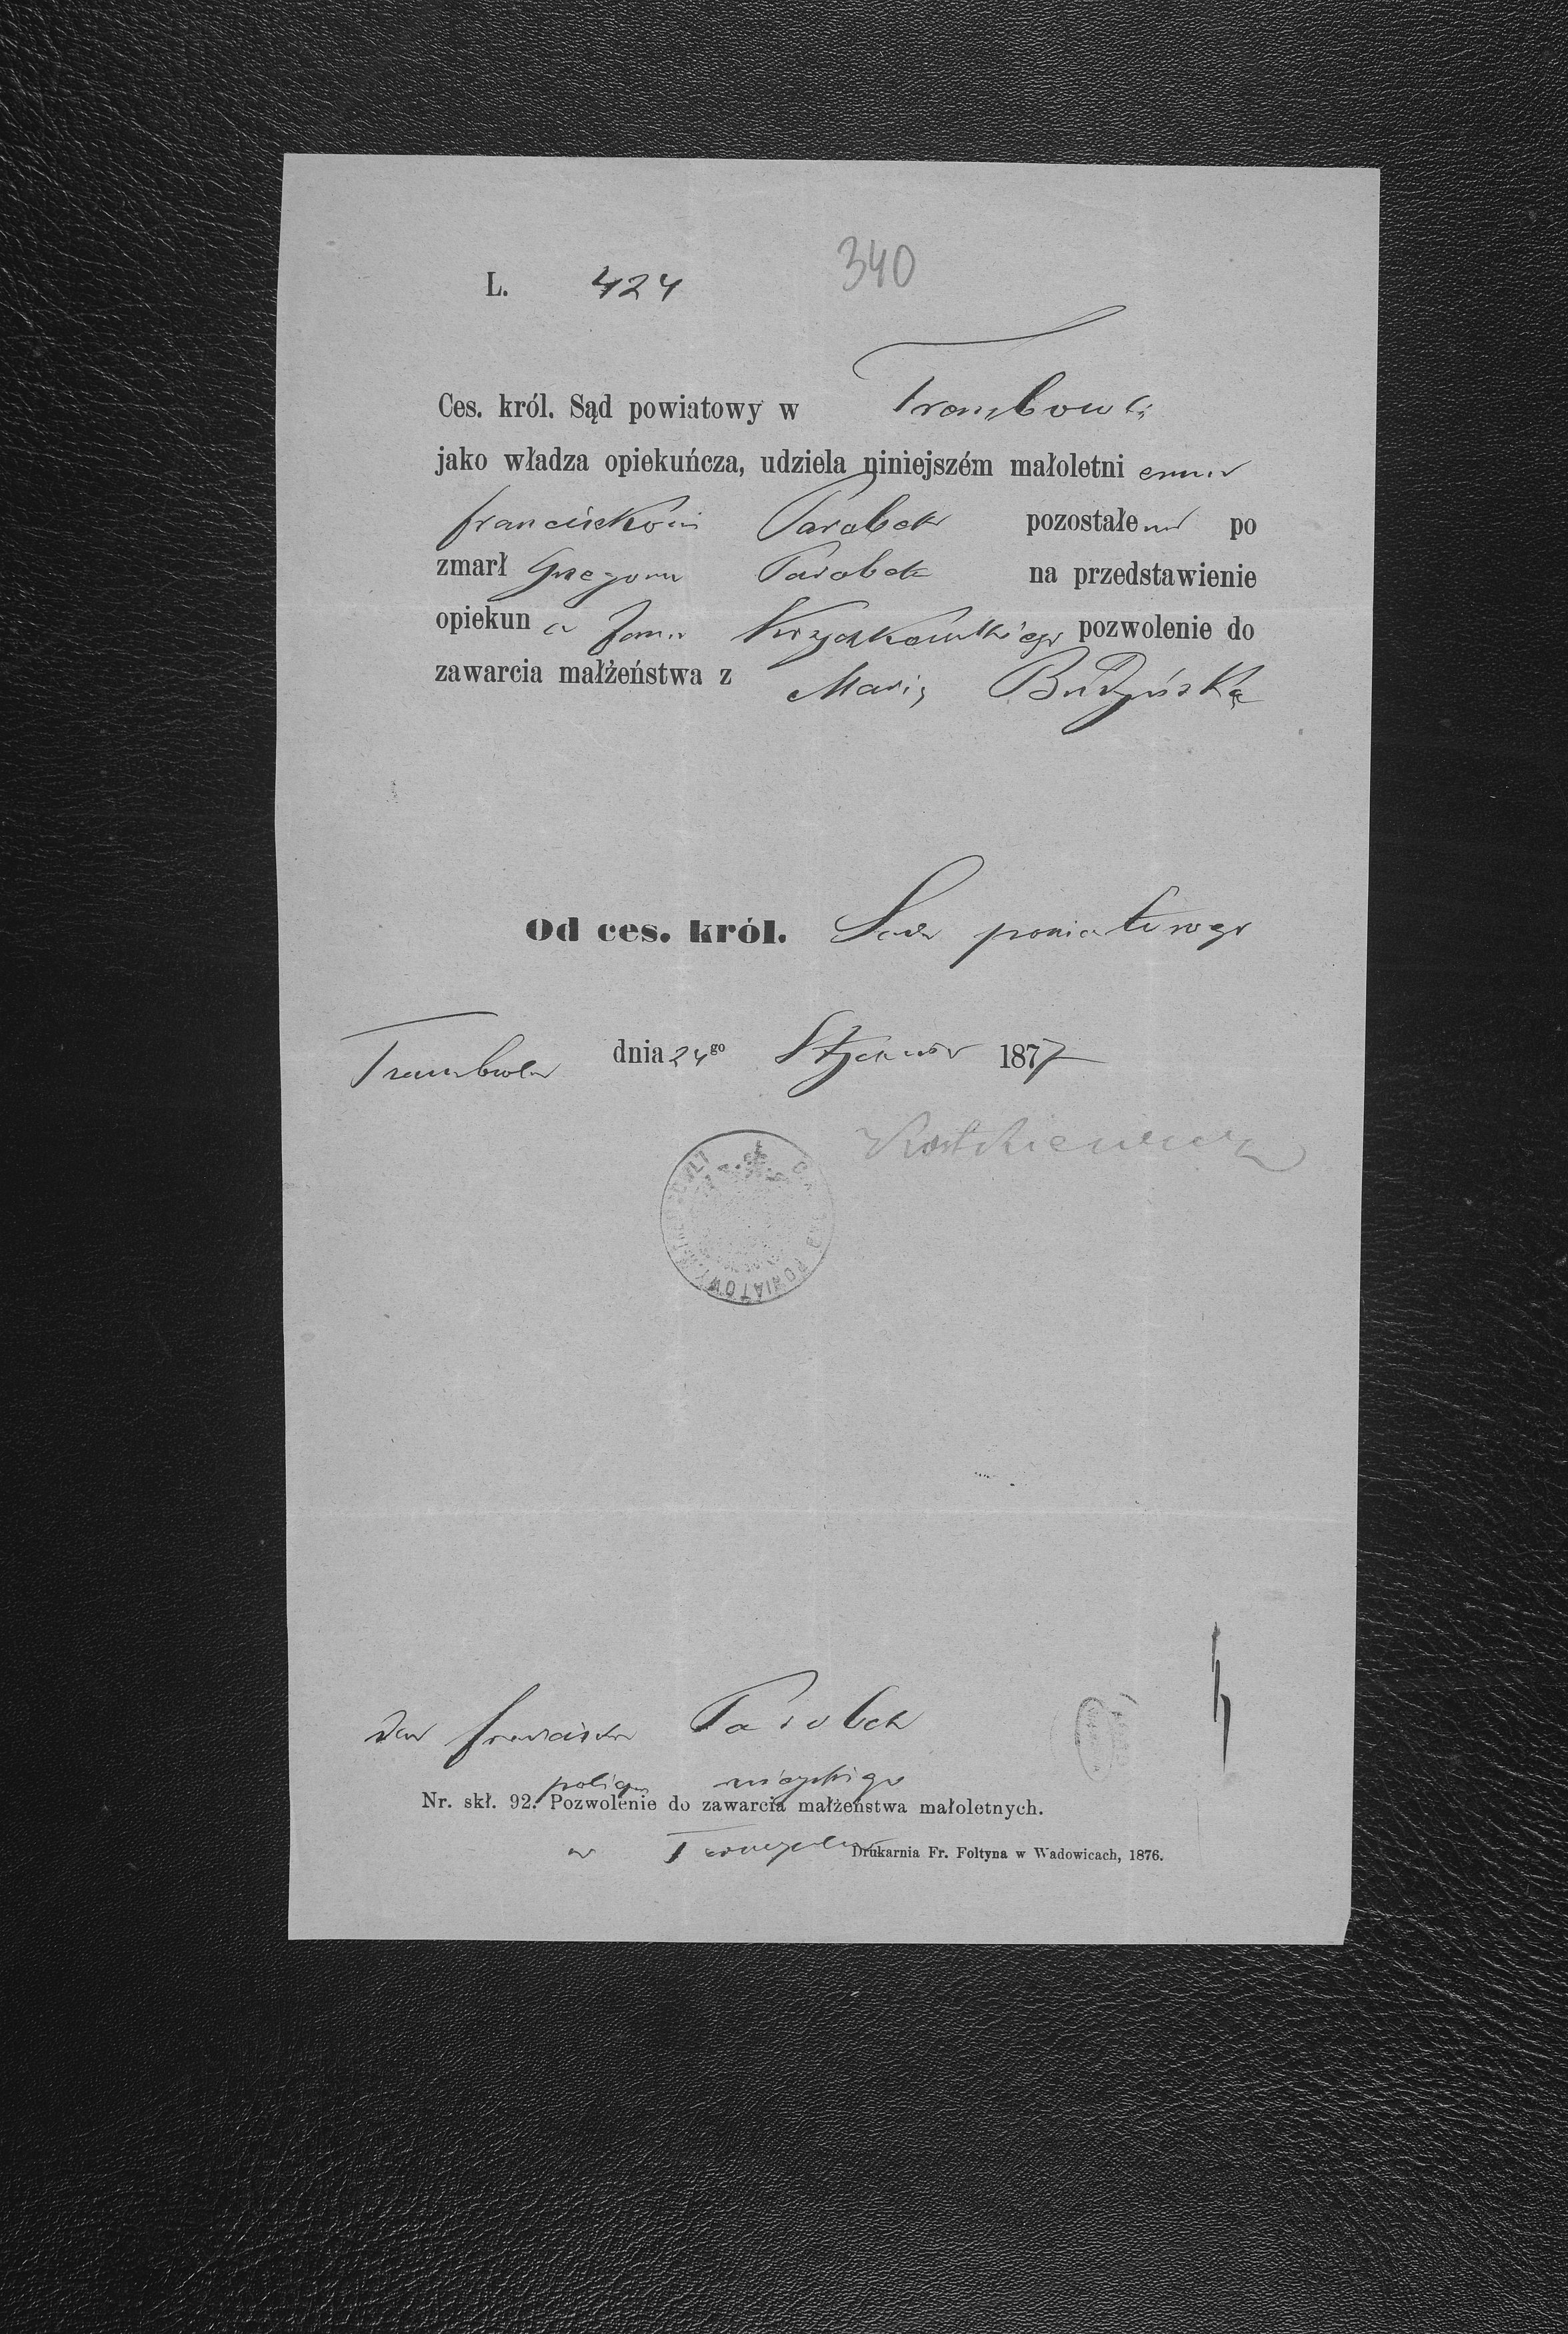 340
L. 424
Ces. król. Sąd powiatowy w Trembowli
jako władza opiekuńcza, udziela niniejszém małoletni emu
Franciszkowi Parobek pozostałemu po
zmarł Grzegorzu Parobek na przedstawienie
opiekun a Jana pozwolenie do
zawarcia małżeństwa z Marią Budzyńską
Od ces. król. Sądu powiatowego
Trembowla dnia 24go Stycznia 1877
POWIATOWY
Franciszka Parobek
miejskiego
Nr. skł. 92. Pozwolenie do zawarcia małżeństwa małoletnych.
w
Drukarnia Fr. Foltyna w Wadowicach, 1876.